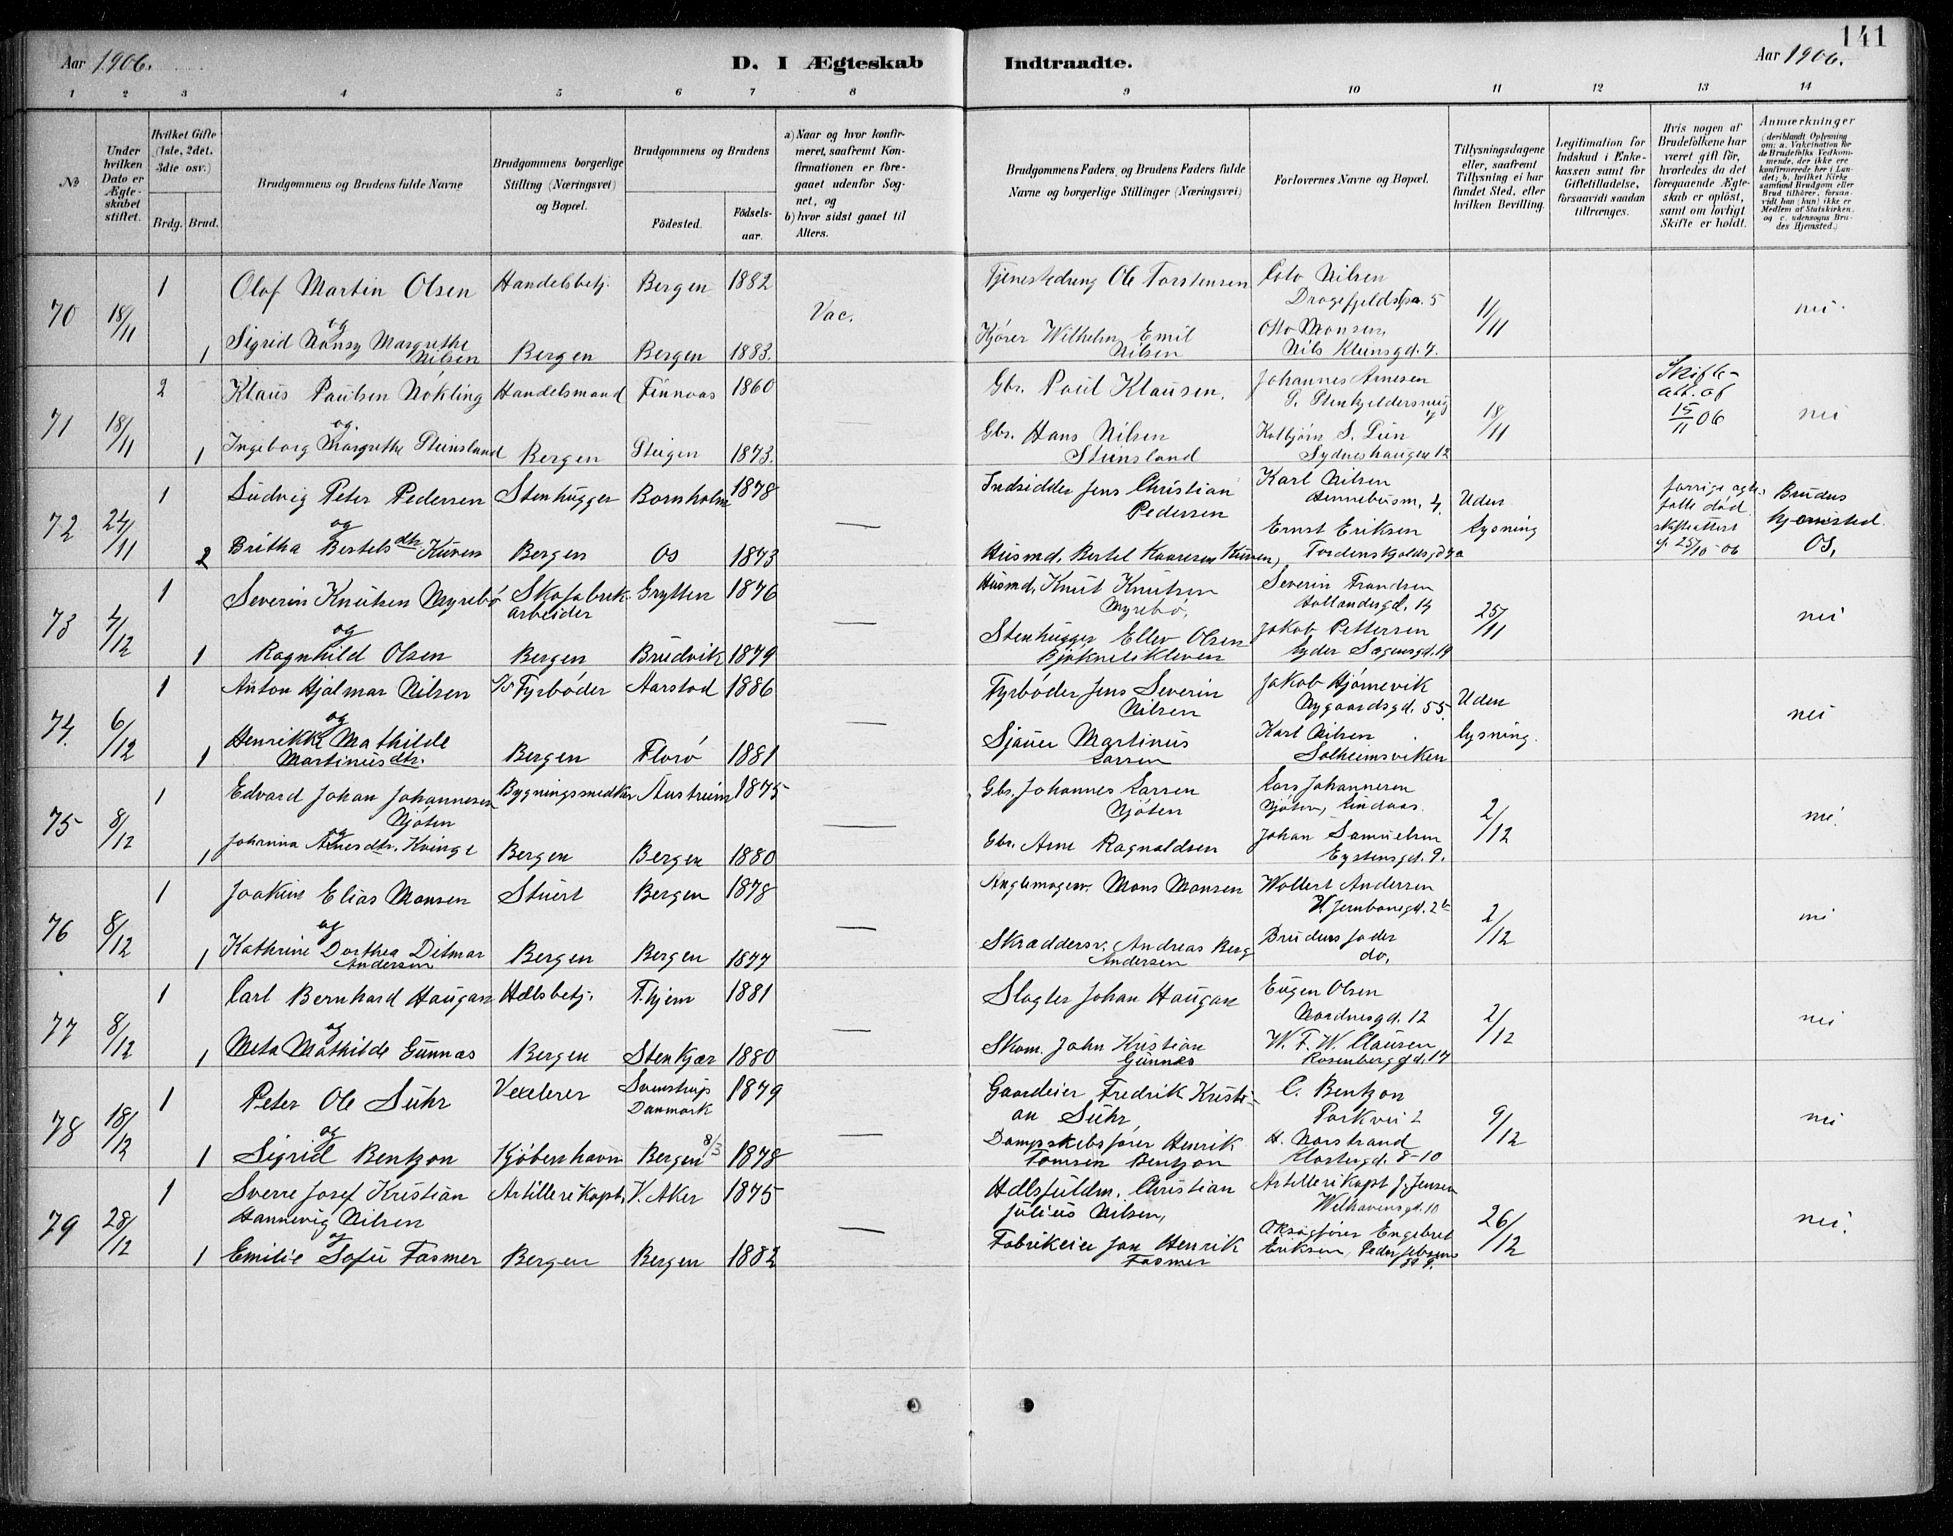 141
Aar 1906.
D. I Ægteskab Indtraadte.
Aar 1906.
1 2 3 4 5 6 7 8 9 10 11 12 13 14
No.
Under hvilken Dato er Ægteskabet stiftet.
Hvilket Gifte (1ste, 2det, 3die osv.)
Brdg. Brud.
Brudgommens og Brudens fulde Navne
Brudgommens borgerlige Stilling (Næringsvei) og Bopæl.
Brudgommens og Brudens
Fødested.
Fødselsaar.
a) Naar og hvor konfirmeret, saafremt Konfirmationen er foregaaet udenfor Sognet, og
b) hvor sidst gaaet til Alters.
Brudgommens Faders, og Brudens Faders fulde Navne og borgerlige Stillinger (Næringsvei)
Forlovernes Navne og Bopæl.
Tillysningsdagene eller, saafremt Tillysning ei har fundet Sted, efter hvilken Bevilling.
Legitimation for Indskud i Enkekassen samt for Giftetilladelse, forsaavidt saadan tiltrænges.
Hvis nogen af Brudefolkene har været gift før, hvorledes da det foregaaende Ægteskab er opløst, samt om lovligt Skifte er holdt.
Anmærkninger
(deriblandt Oplysning om: a. Vakcination for de Brudefolks Vedkommende, der ikke ere konfirmerede her i Landet; b. hvilket Kirkesamfund Brudgom eller Brud tilhører, forsaavidt han (hun) ikke er Medlem af Statskirken, og c. udensogns Brudes Hjemsted.)
70 18/11 1 Olaf Martin Olsen Handelsbetj. Bergen 1882 Vac. Tjenestedreng Ole Torstensen Nilsen 5 11/11 nei
og
1 Sigrid Nansy Margrethe Nilsen Bergen Bergen 1883. Kjører Wilhelm Emil Nilsen Otto Monsen, Nils Kleinsgd. 7.
71 18/11 2 Klaus Paulsen Nökling Handelsmand Finnaas 1860 Gbr. Paul Klausen. Johannes Arnesen 18/11 Skifteatt. af 15/11 06 nei
og
1 Ingeborg Margrethe Steinsland Bergen Steigen 1873. Gbr. Hans Nilsen Steinsland Kolbjørn S. Lien Sydneshaugen 12
72 24/11 1 Ludvig Peter Pedersen Stenhugger Bornholm 1878 Indsidder Jens Christian Pedersen Karl Nilsen 4. Uden Lysning forrige ægtefælle død. skifteattest Brudens hjemsted Os.
og
2 Britha Bertelsdtr Kuven Bergen Os 1873 Husmd. Bertel Kaaresen Kuven, Ernst Eriksen Tordenskjoldsgd 7a
73 4/12 1 Severin Knutsen Myrebö Skofabrikarbeider Grytten 1876 Husmd. Knut Knutsen Myrebö. Severin Frandsen Hollandergd. 14 25/11 nei
og
1 Ragnhild Olsen Bergen Brudvik 1879 Stenhugger Ellev Olsen Lyder Sagensgd. 19 Jakob Pettersen
74. 6/12 1 Anton Hjalmar Nilsen Fyrbøder Aarstad 1886 Fyrbøder Jens Severin Nilsen Jakob Hjørnevik Nygaardsgd. 55. Uden lysning. nei
og
1 Henrikke Mathilde Martinusdtr. Bergen Florø 1881 Sjauer Martinus Larsen Karl Nilsen Solheimsviken
75 8/12 1 Edvard Johan Johannesen Njöten Bygningssnedker Austrheim 1875 Gbr. Johannes Larsen Njöten Lars Johannesen Njöten, Lindaas. 2/12 nei.
og
1 Johanna Arnesdtr. Kvinge Bergen Bergen 1880 Gbr. Arne Ragnaldsen Johan Samuelsen Eystensgd. 9.
76 8/12 1 Joakim Elias Monsen Stuert Bergen 1878 Mons Monsen Wollert Andersen Jernbanegd. 2b 2/12 nei
og
1 Kathrine Dorthea Ditmar Andersen Bergen Bergen 1877 Skræddersv. Andreas Berg Andersen Brudens fader do.
77 8/12 1 Carl Bernhard Haugan Hdlsbetj. T.hjem 1881 Slagter Johan Haugan Eugen Olsen Nordnesgd. 12 2/12 nei
og
1 Meta Mathilde Gunnæs Bergen Stenkjær 1880 Skom. John Kristian Gunnes W. F. W. Clausen Rosenberggd. 17
78 18/12 1 Peter Ole Suhr Vexlerer Svenstrup Danmark 1879 Gaardeier Fredrik Kristian Suhr, C. Bentzon Parkvei 2 9/12 nei
og
1 Sigrid Bentzon Kjøbenhavn Bergen 8/3 1878 Dampskibsfører Henrik Tomsen Bentzon H. Norstrand Klostergd. 8-10
79 28/12 1 Sverre Josef Kristian Hannevig Nilsen Artillerikapt. V. Aker 1875 Hdlsfuldm. Christian Julius Nilsen, Artillerikapt J. Jensen Welhavensgd. 10 26/12 nei.
og
1 Emilie Sofie Fasmer Bergen Bergen 1882 Fabrikeier Jan Henrik Fasmer Engebret Eriksen,